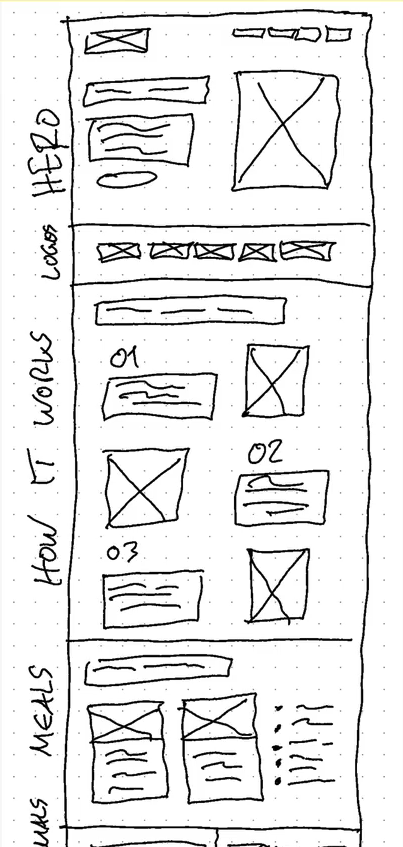 HERO
LOGOS
HOW IT WORKS
01
02
03
MEALS